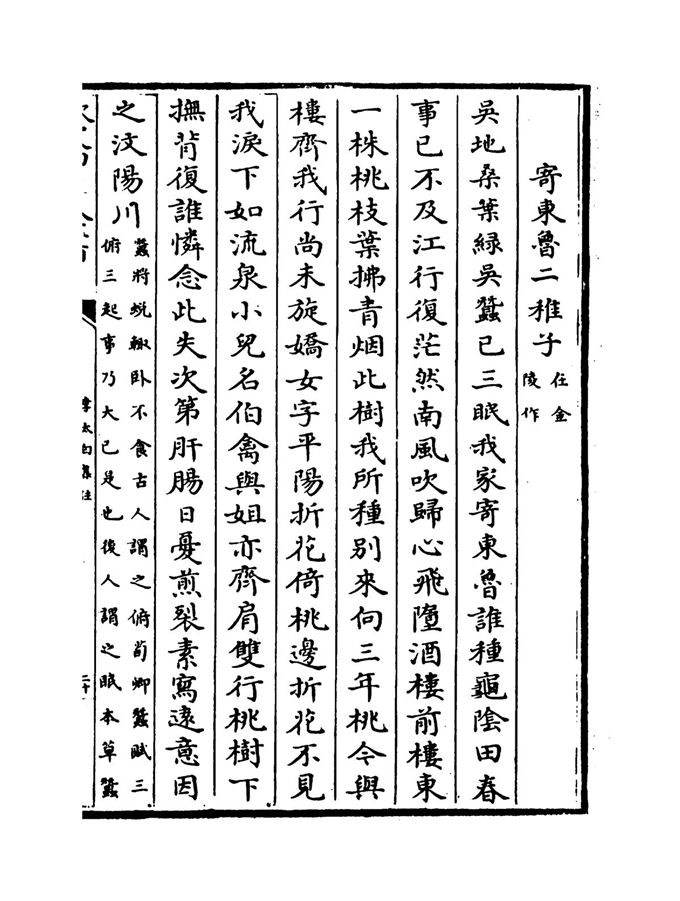 寄東魯二稚子在金陵作
吳地桑葉緑吳蠶已三眠我家寄東魯誰種龜陰田春
事已不及江行復茫然南風吹歸心飛墮酒樓前樓東
一株桃枝葉拂青烟此樹我所種别來向三年桃今與
樓齊我行尚未旋嬌女字平陽折花倚桃邊折花不見
我淚下如流泉小兒名伯禽與姐亦齊肩雙行桃樹下
撫背復誰憐念此失次第肝腸日憂煎裂素寫遠意因
之汶陽川
蠶將蜕輙卧不食古人謂之俯荀卿蠶賦三
俯三起事乃大已是也後人謂之眠本草蠶
李太白集注